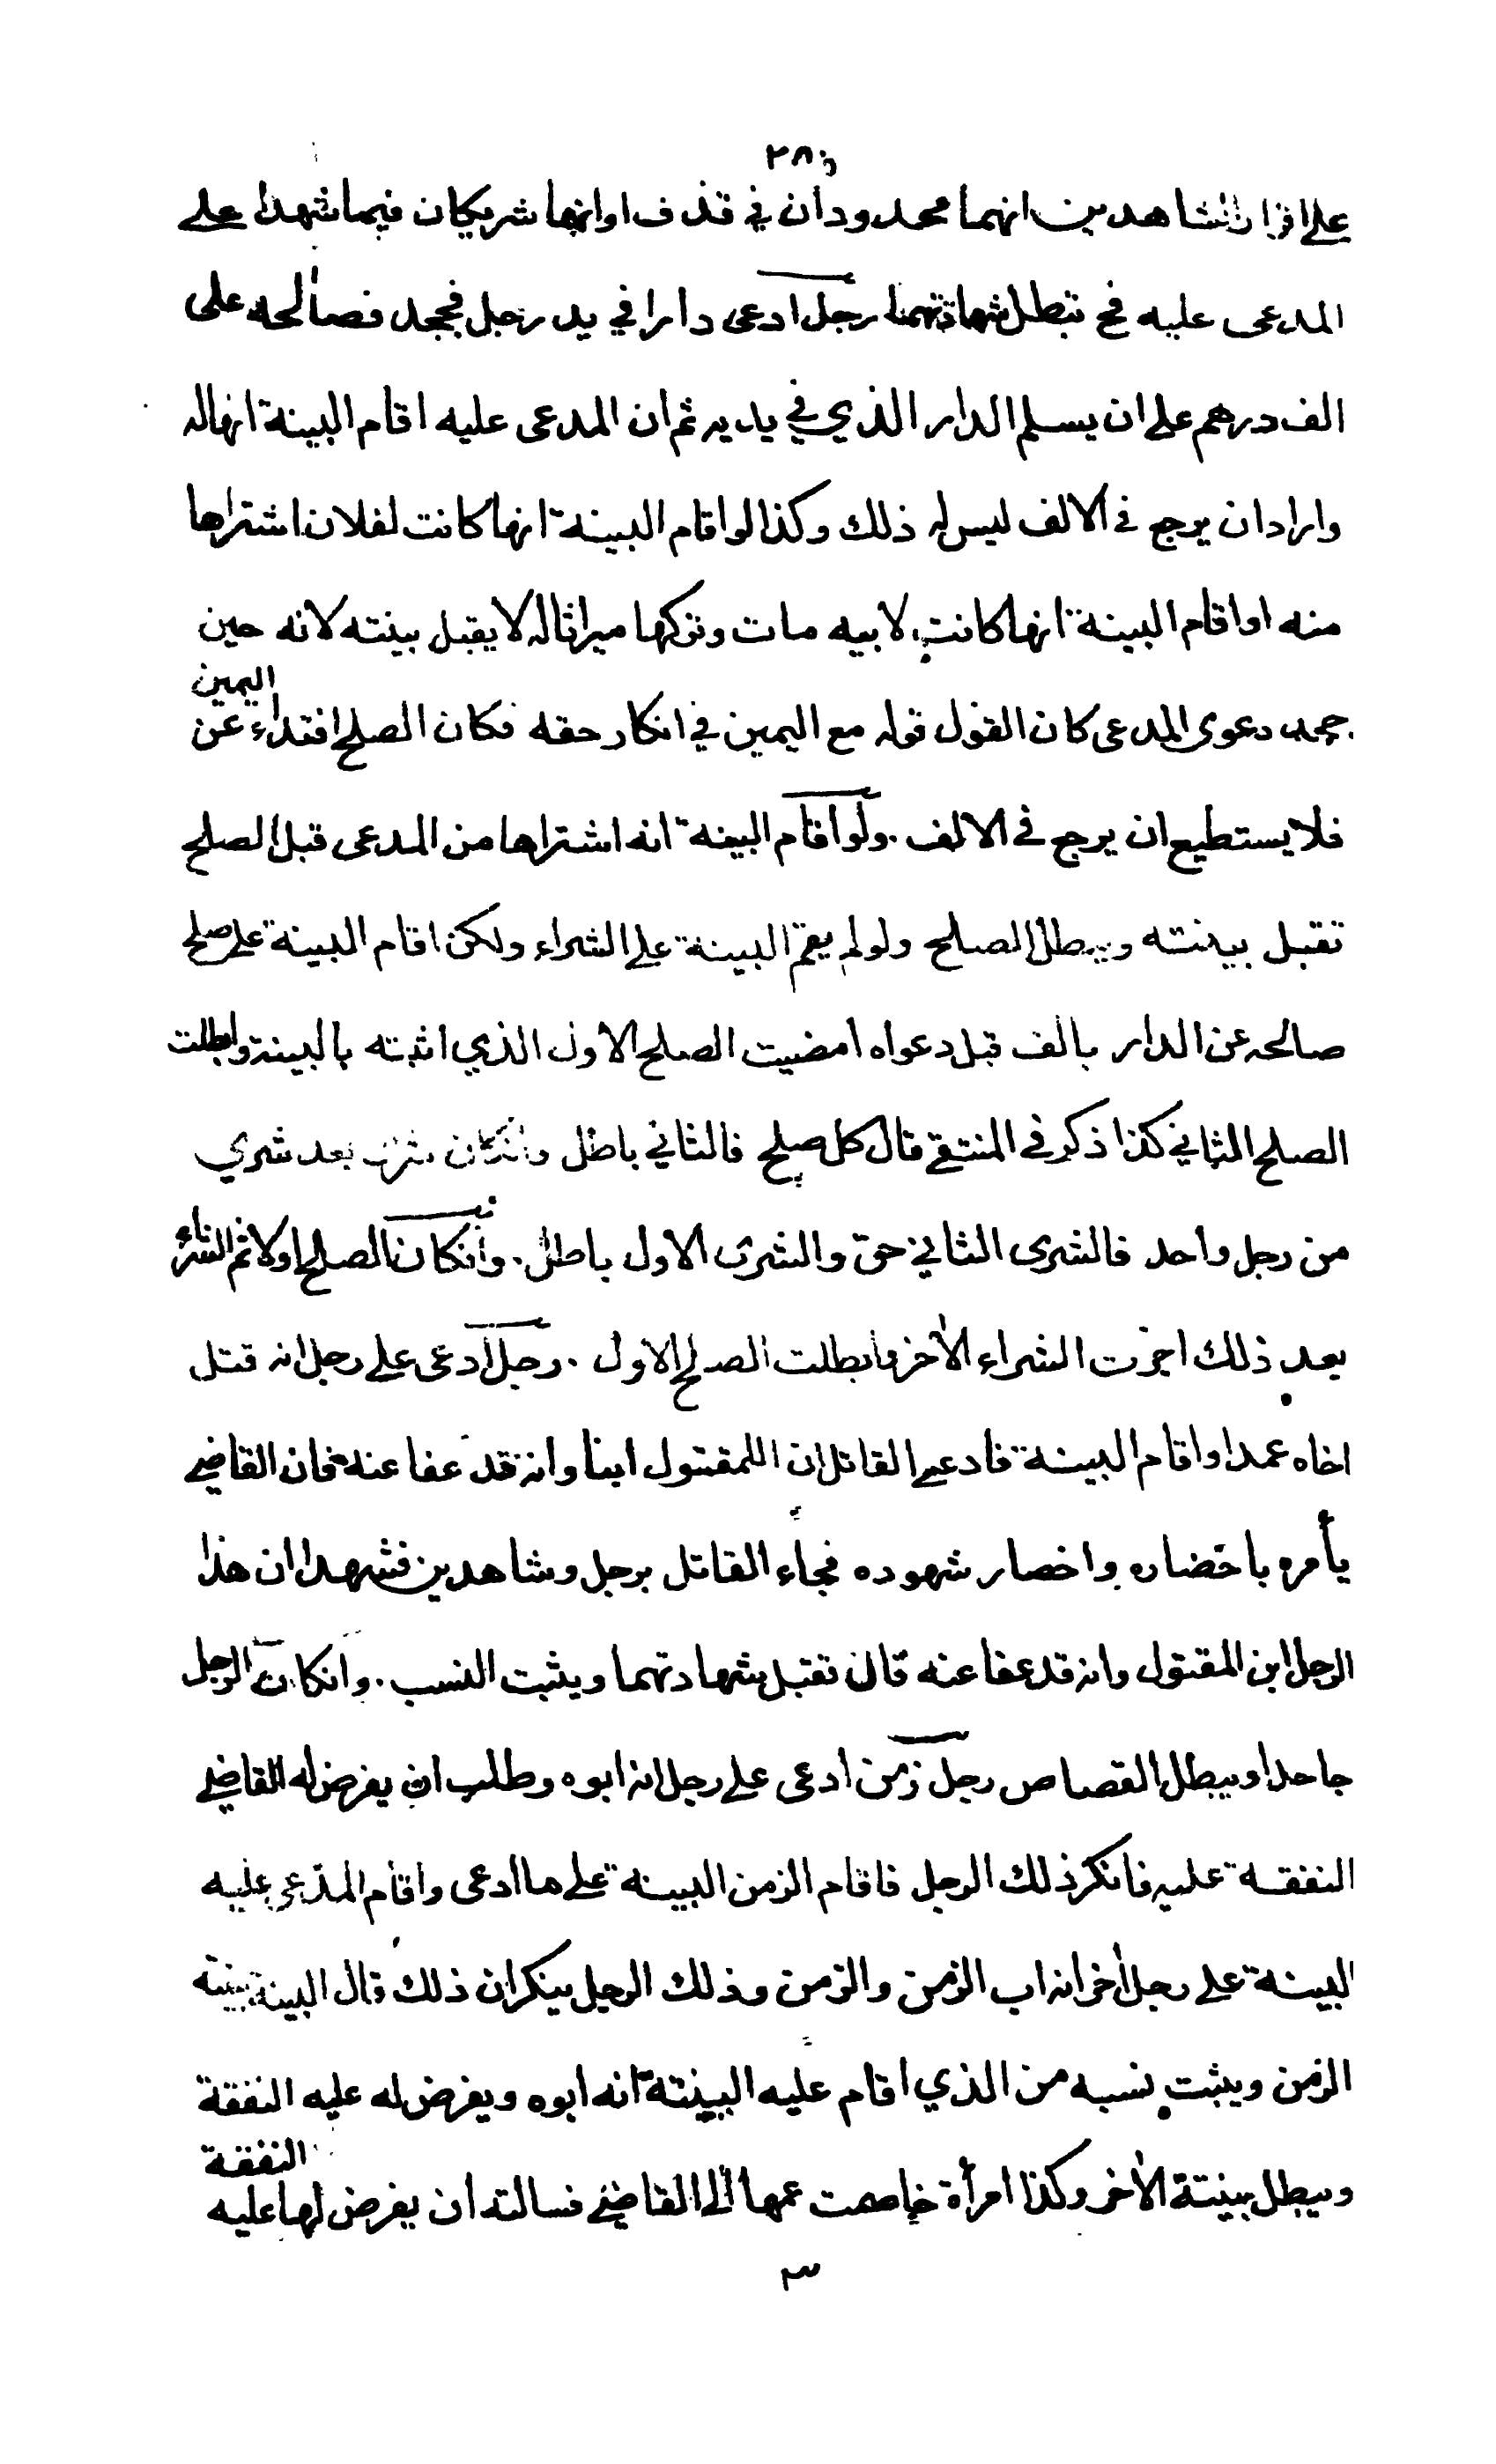 ٢٨٥
على اقرار الشاهدين انهما محدودان في قذف او انهما شريكان فيما شهدا على
المدعى عليه فح تبطل شهادتهما رجل ادعى دارا في يد رجل فجحد فصالحه على
الف درهم على ان يسلم الدار الذي في يديه ثم ان المدعى عليه اقام البينة انها له
واراد ان يرجع في الالف ليس له ذلك وكذا لو اقام البينة انها كانت لفلان اشتراها
منه او اقام البينة انها كانت لابيه مات وتركها ميراثا له لا يقبل بينته لانه حين
جحد دعوى المدعى كان القول قوله مع اليمين في انكار حقه فكان الصلح افتداء عن اليمين
فلا يستطيع ان يرجع في الالف . ولو اقام البينة انه اشتراها من المدعى قبل الصلح
تقبل بينته ويبطل الصلح ولو لم يقم البينة على الشراء ولكن اقام البينة على صلح
صالحه عن الدار بالف قبل دعواه امضيت الصلح الاول الذي اثبته بالبينة وابطلت
الصلح الثاني كذا ذكر في المنتقى قال كل صلح فالثاني باطل وانكان شرى بعد شري
من رجل واحد فالشرى الثاني حق والشرى الاول باطل . وانكان الصلح اولا ثم الشراء
بعد ذلك اجزت الشراء الأخر وابطلت الصلح الاول . رجل ادعى على رجل انه قتل
اخاه عمدا واقام البينة فادعى القاتل ان اللمقتول ابنا وانه قد عفا عنه فان القاضي
يأمره باحضاره واحضار شهوده فجاء القاتل برجل وشاهدين فشهدا ان هذا
الرجل ابن المقتول وانه قد عفا عنه قال تقبل شهادتهما ويثبت النسب . وانكان الرجل
جاحدا ويبطل القصاص رجل زمن ادعى على رجل انه ابوه وطلب ان يفرض له القاضي
النفقة عليه فانكر ذلك الرجل فاقام الزمن البينة على ما ادعى واقام المدعى عليه
البينة على رجل أخر انه اب الزمن والزمن وذلك الرجل ينكران ذلك قال البينة بينة
الزمن ويثبت نسبه من الذي اقام عليه البينتة انه ابوه ويفرض له عليه النفقة
ويبطل بينتة الأخر وكذا امرأة خاصمت عمها الى القاضي فسالته ان يفرض لها عليه النفقة
٣